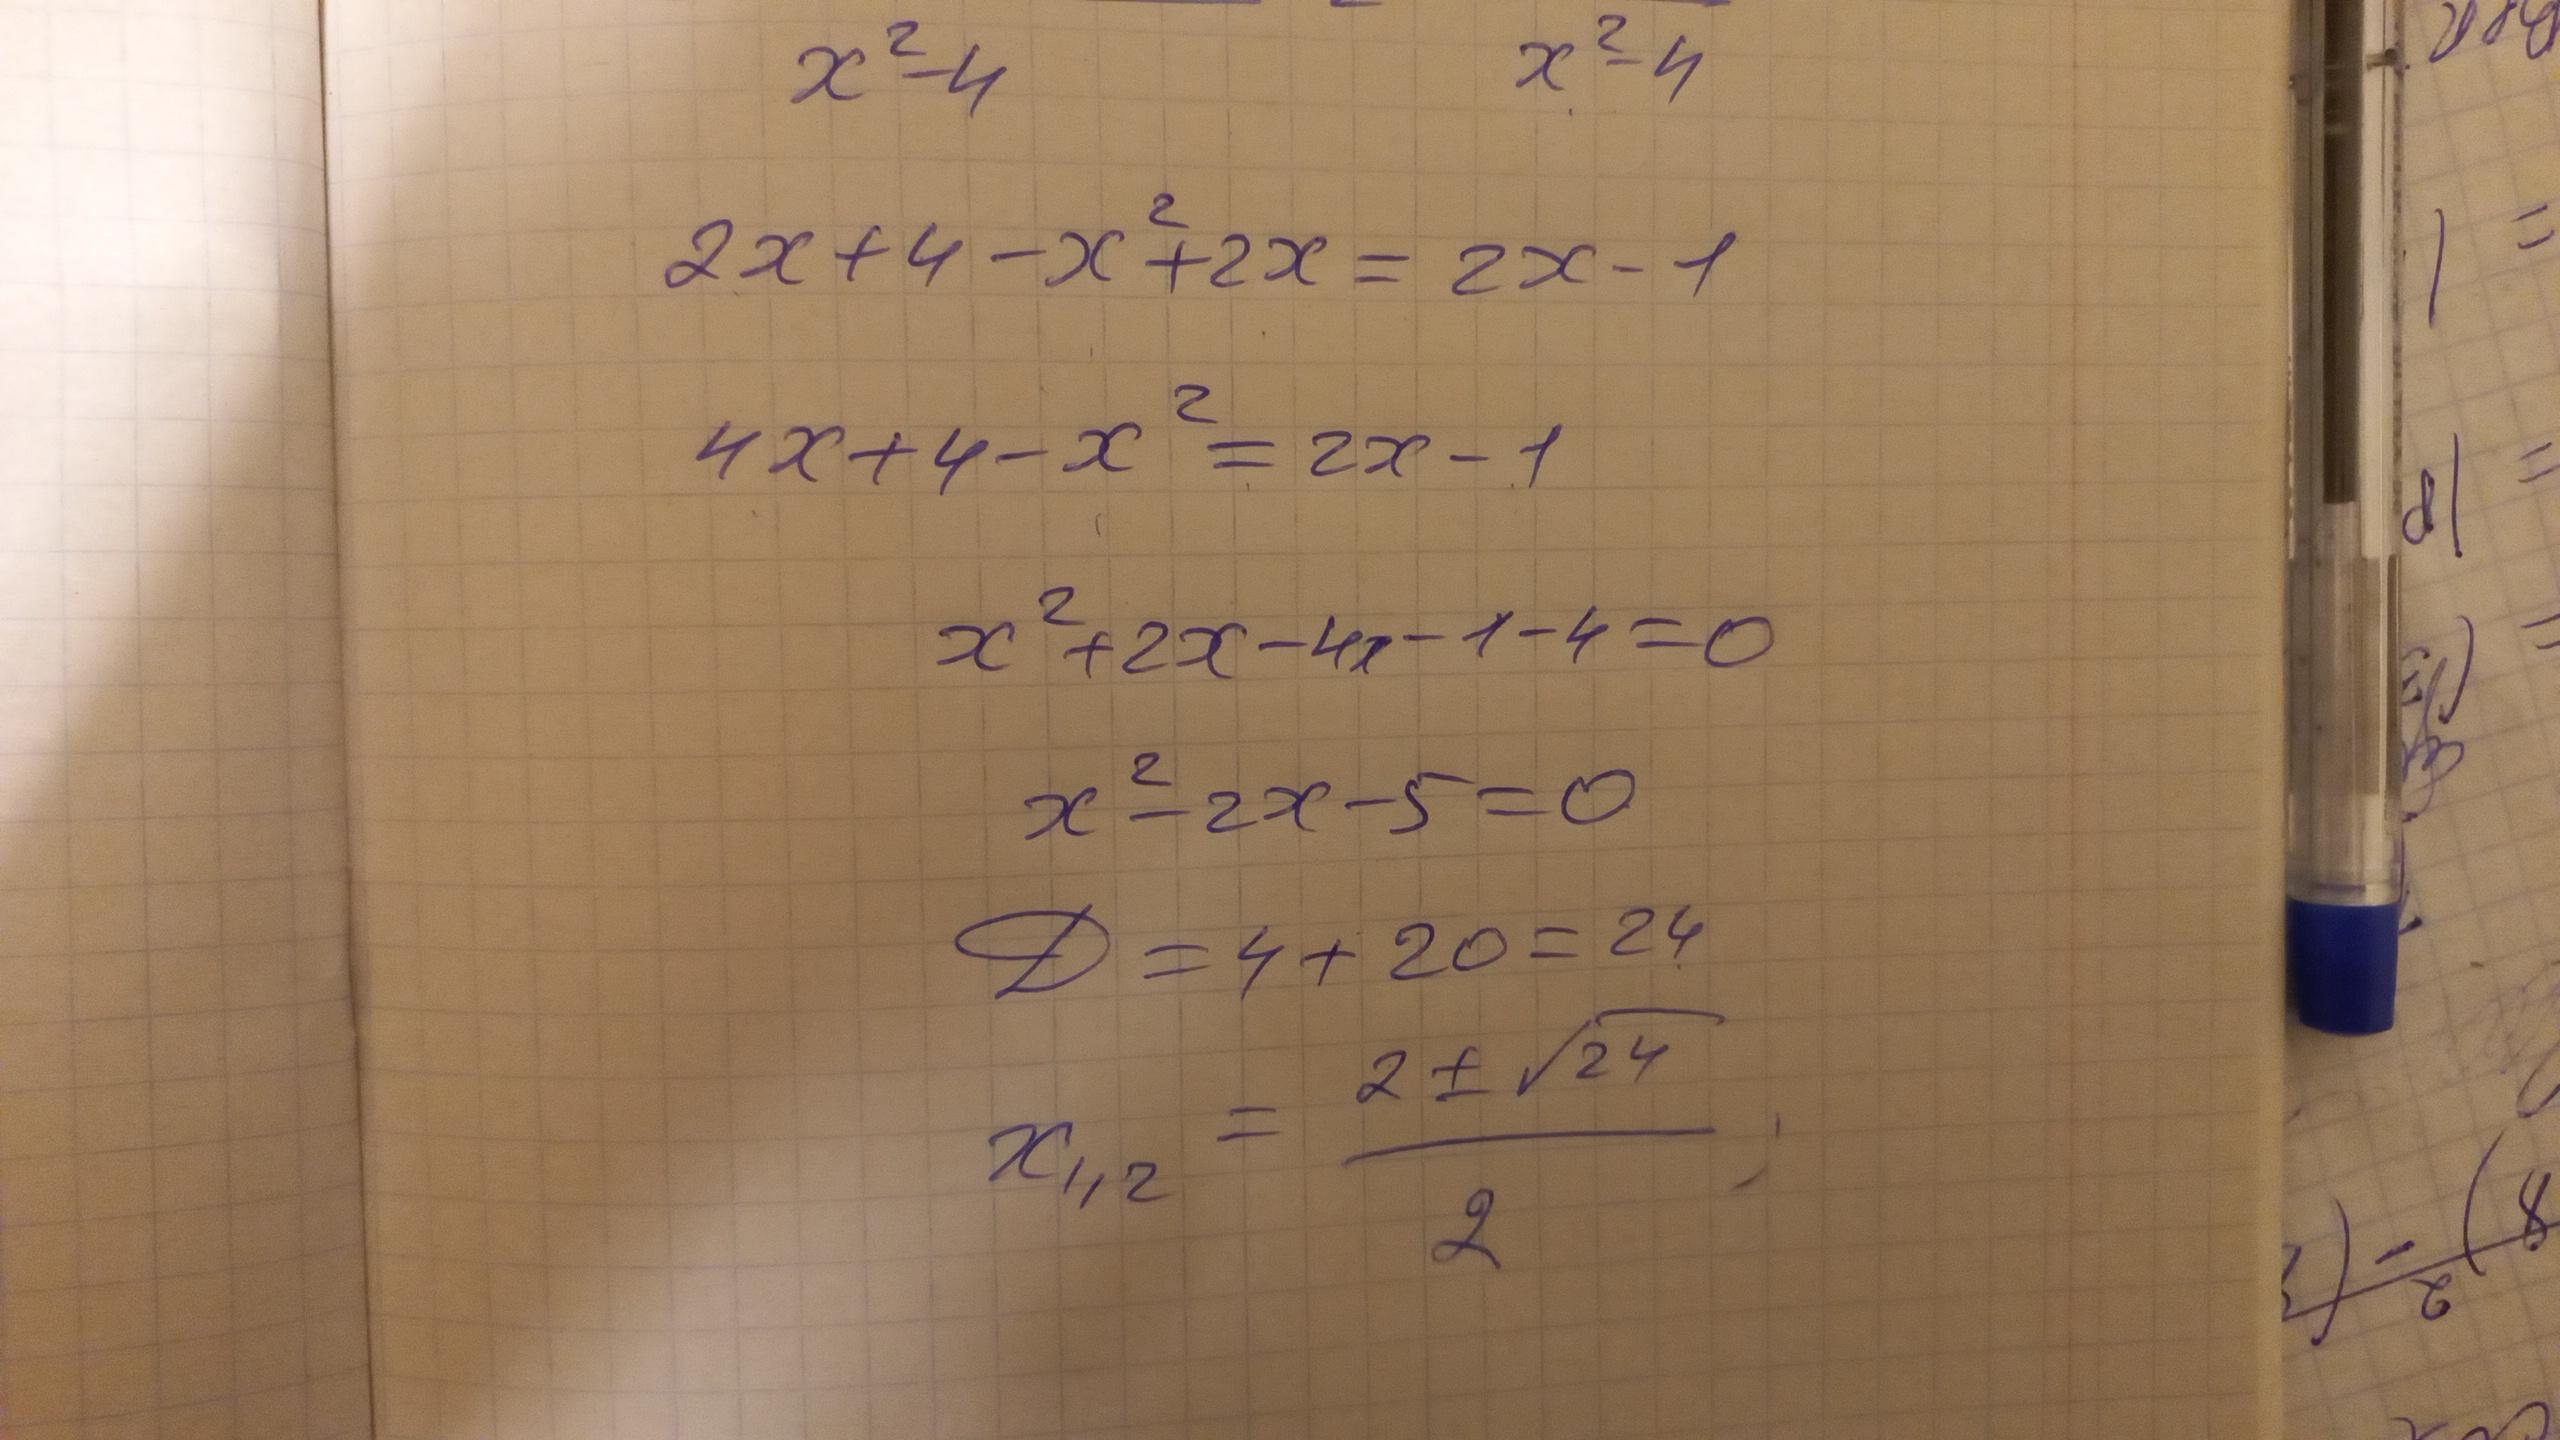 x²-4 x²-4
2x+4-x²+2x=2x-1
4x+4-x²=2x-1
x²+2x-4x-1-4=0
x²-2x-5=0
D=4+20=24
x₁,₂ = (2±√24)/2;